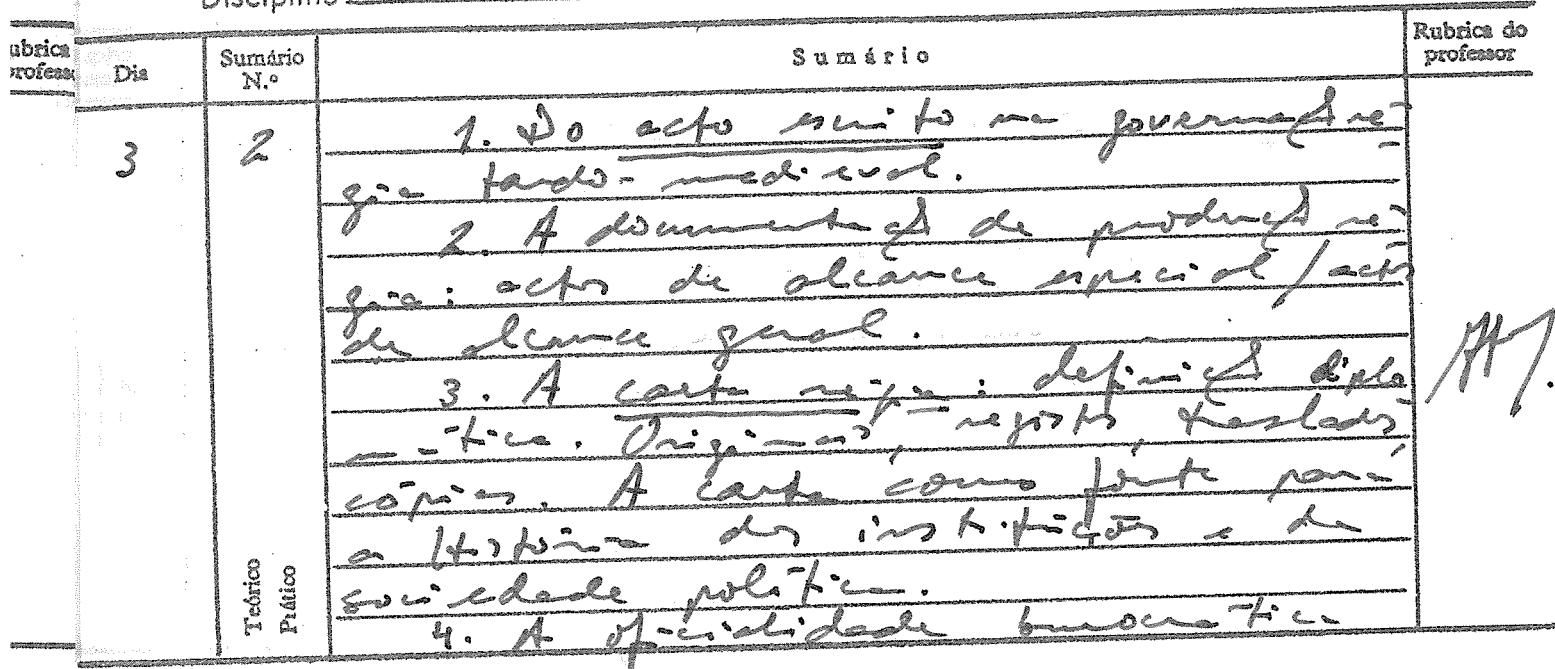 Disciplina
ubrica
professo
Dia
Sumário
N.º
Sumário
Rubrica do
professor
3
2
1. Do acto escrito na governação ré-
gia tardo-medieval.
2. A documentação de produção ré-
gia: actos de alcance especial / actos
de alcance geral.
3. A carta régia: definição diplo
mática. Originais, registos, traslados,
cópias. A carta como fonte para
a História das instituições e da
sociedade política.
4. A oficialidade burocrática
Teórico
Prático